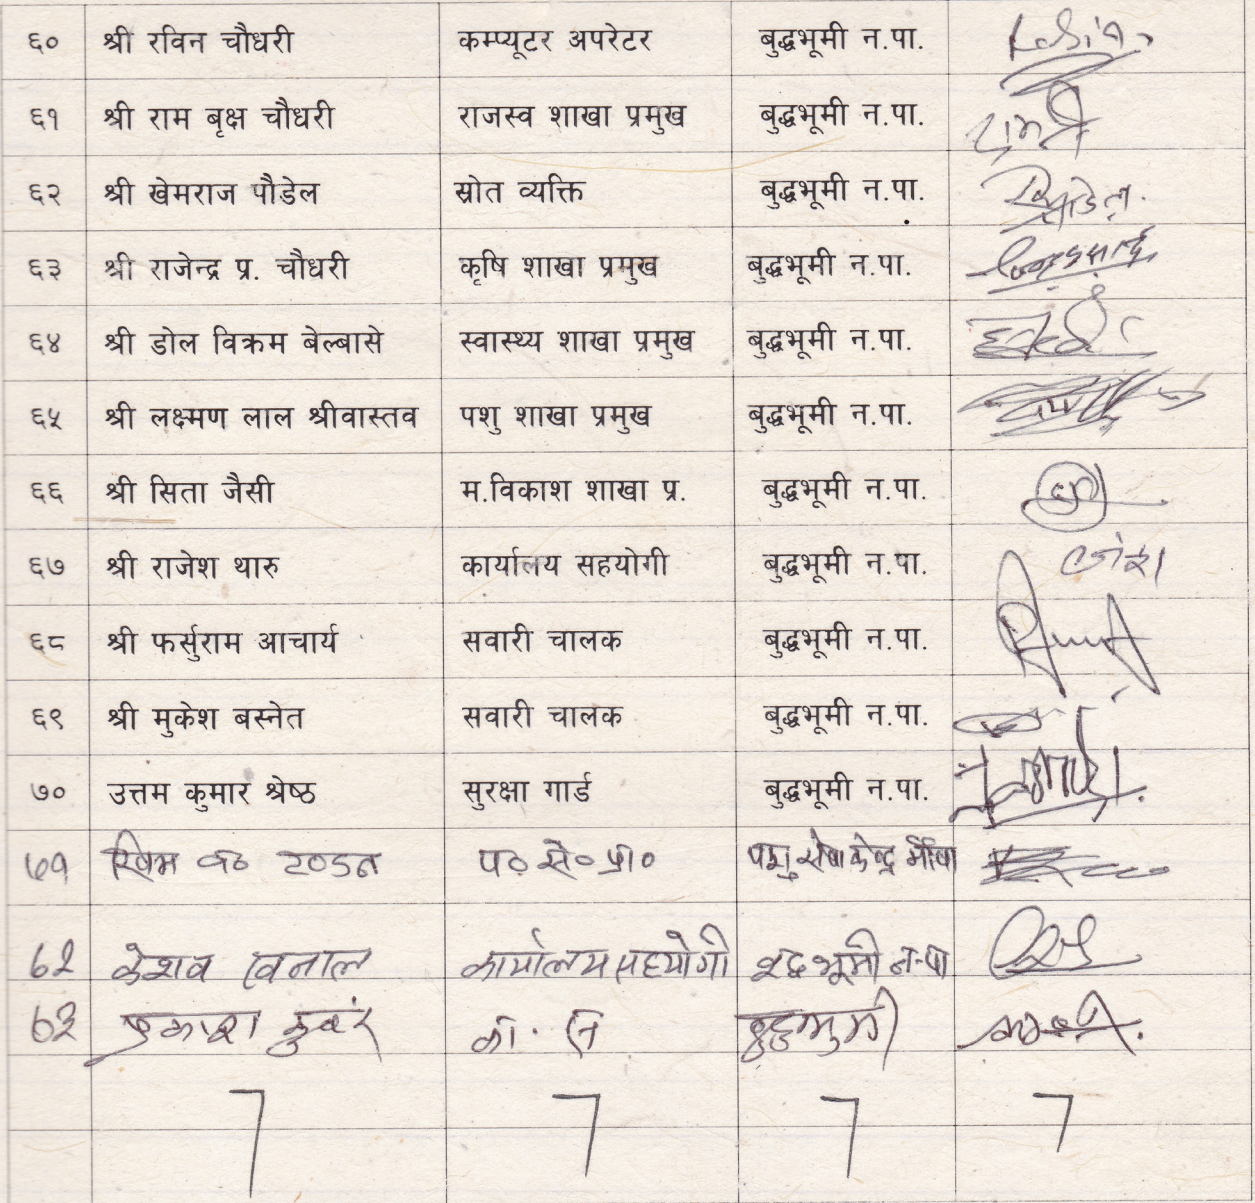 ६० श्री रविन चौधरी कम्प्यूटर अपरेटर बुद्धभूमी न.पा.
६१ श्री राम बृक्ष चौधरी राजस्व शाखा प्रमुख बुद्धभूमी न.पा.
६२ श्री खेमराज पौडेल स्रोत व्यक्ति बुद्धभूमी न.पा.
६३ श्री राजेन्द्र प्र. चौधरी कृषि शाखा प्रमुख बुद्धभूमी न.पा.
६४ श्री डोल विक्रम बेल्बासे स्वास्थ्य शाखा प्रमुख बुद्धभूमी न.पा.
६५ श्री लक्ष्मण लाल श्रीवास्तव पशु शाखा प्रमुख बुद्धभूमी न.पा.
६६ श्री सिता जैसी म.विकाश शाखा प्र. बुद्धभूमी न.पा.
६७ श्री राजेश थारु कार्यालय सहयोगी बुद्धभूमी न.पा.
६८ श्री फर्सुराम आचार्य सवारी चालक बुद्धभूमी न.पा.
६९ श्री मुकेश बस्नेत सवारी चालक बुद्धभूमी न.पा.
७० उत्तम कुमार श्रेष्ठ सुरक्षा गार्ड बुद्धभूमी न.पा.
७१ खिम ब० टण्डन प० से० प्रा० पशु सेवा केन्द्र
७२ केशव खनाल कार्यालय सहयोगी बुद्धभूमी न.पा
७३ प्रकाश कुवंर का. स बुद्धभुमी